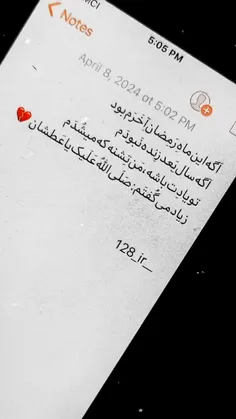 MCI
5:05 PM
Notes
April 8, 2024 at 5:02 PM
آگه این ماه رمضان آخرم بود
آگه سال بعد زنده نبودم
تو یادت باشه، من تشنه که میشدم
زیاد می گفتم: صلی الله علیک یا عطشان 💔
128_ir__